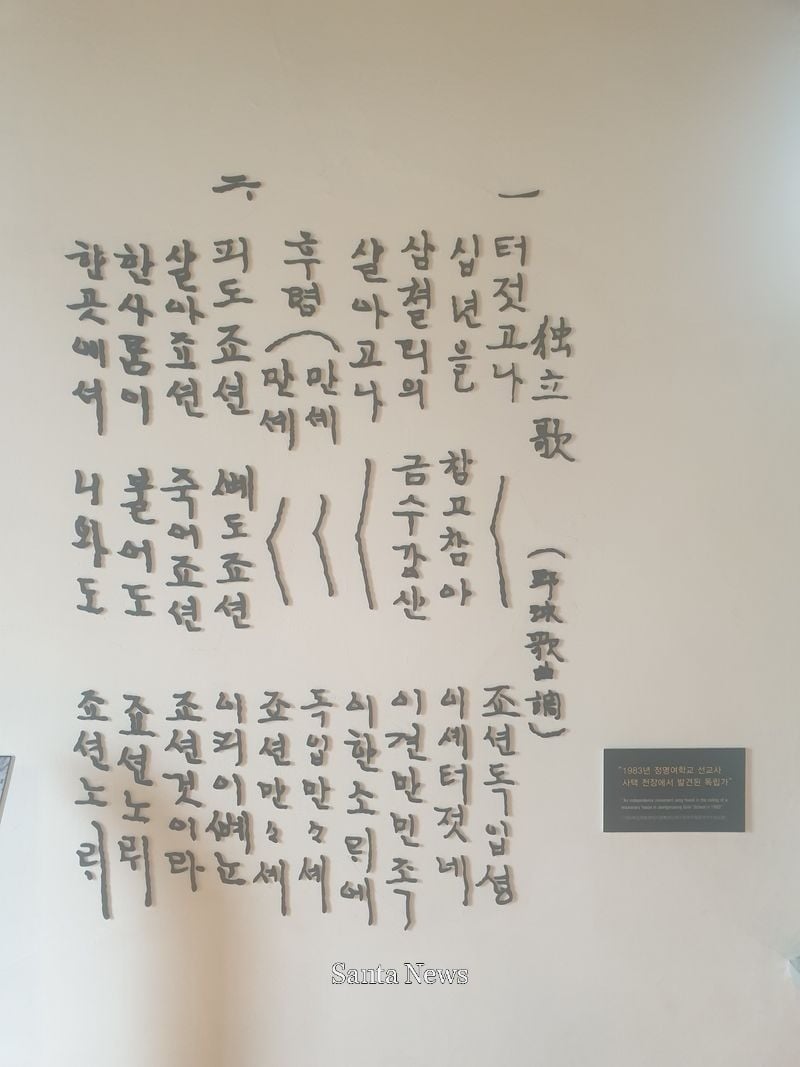 独立歌 (野球歌曲調)
一
터젓고나 〈 죠션독입셩
십년을 참고참아 이셰터젓네
삼쳘리의 금수강산 이쳔만민족
살아고나 〈 이한소ᄅᆡ에
후렴 ( 만세 〈 독입만々세
만세 〈 죠션만々세
二
피도죠션 뼈도죠션 이피이뼈는
살아죠션 죽어죠션 죠션것이라
한사ᄅᆞᆷ이 불어도 죠션노ᄅᆡ
한곳에셔 니와도 죠션노ᄅᆡ
"1983년 정명여학교 선교사
사택 천장에서 발견된 독립가"
"An independence movement song found in the ceiling of a
missionary house in Jeongmyeong Girls' School in 1983"
Santa News